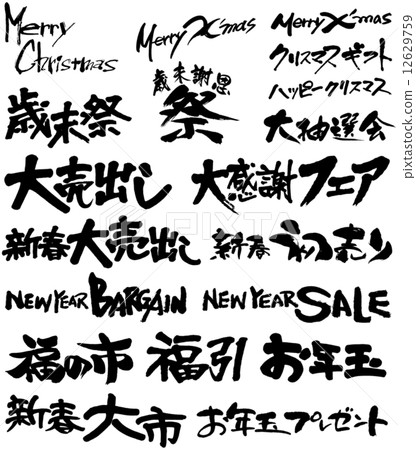 Merry Christmas
Merry X'mas
Merry X'mas
クリスマスギフト
ハッピークリスマス
歳末祭
歳末謝恩
祭
大抽選会
大売出し
大感謝フェア
新春大売出し
新春初売り
NEW YEAR BARGAIN
NEW YEAR SALE
福の市
福引
お年玉
新春大市
お年玉プレゼント
PIXTA
pixtastock.com - 12629759